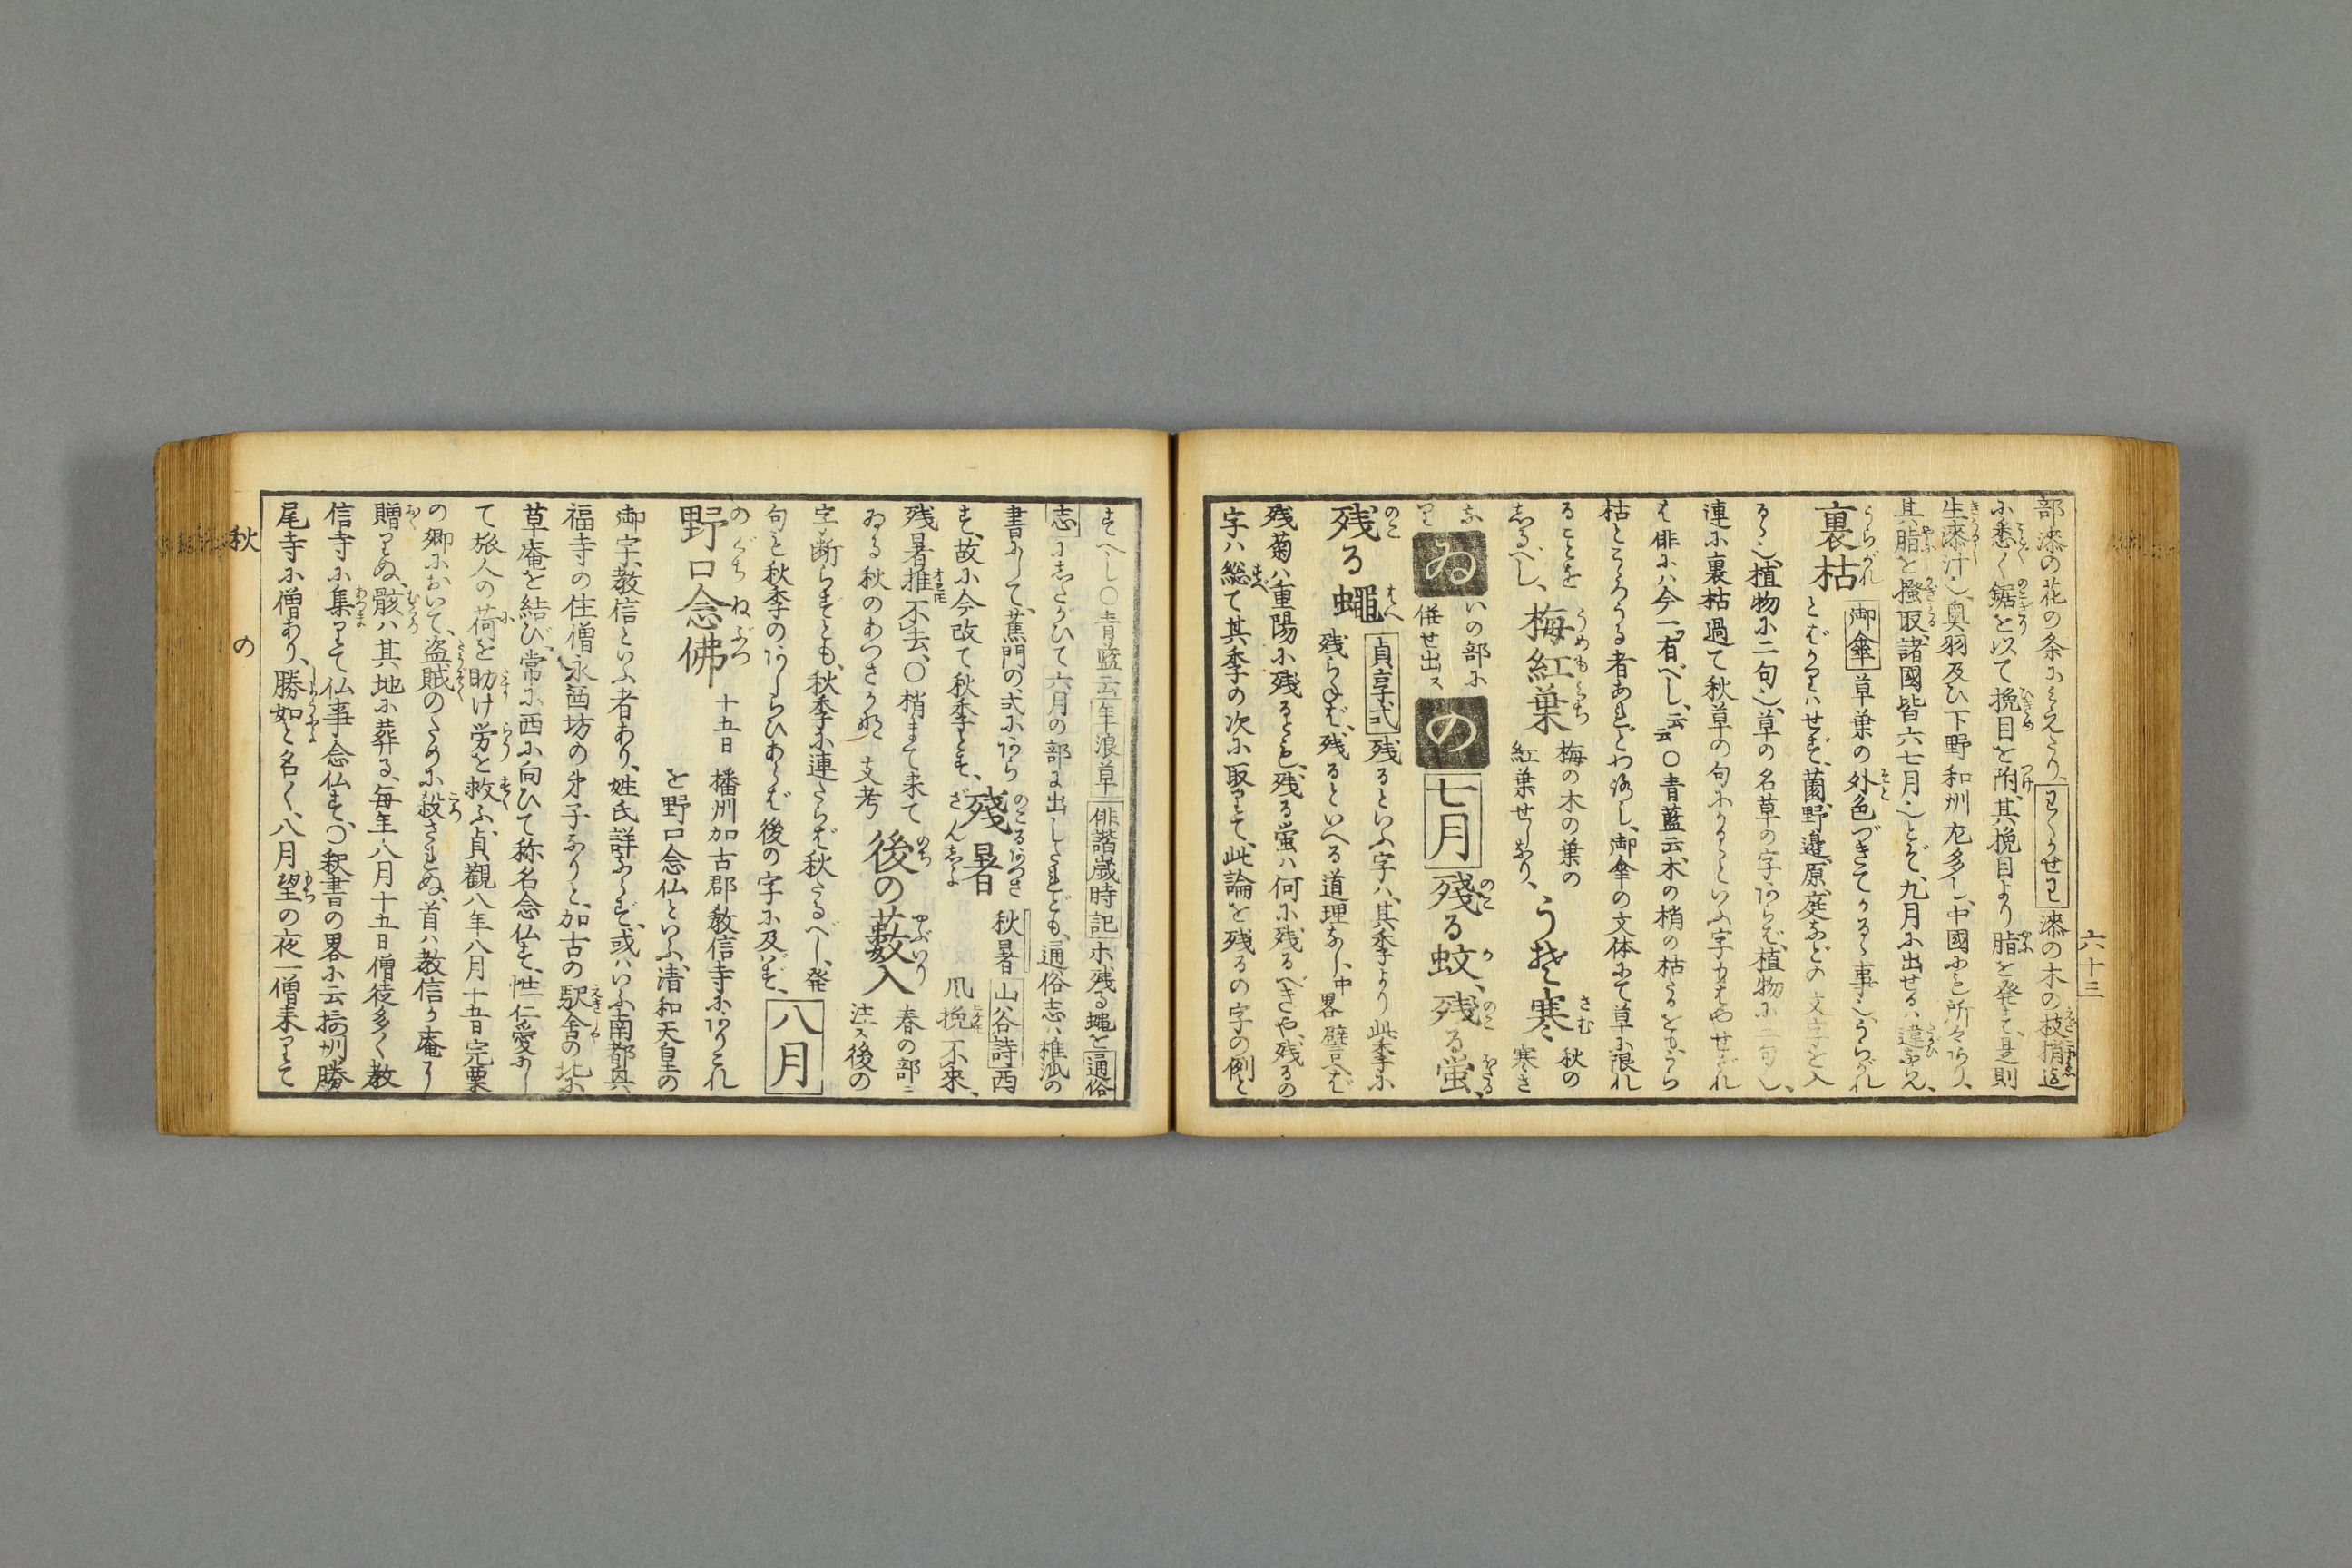 六十三
部漆の花の条にみえたり、わくらせわ漆の木の枝梢迄
に悉く鋸を以て挽目を附、其挽目より脂を発す、是則
生漆汁也、奥羽及ひ下野和州尤多し、中國にも所々にあり、
其脂を掻取、諸國皆六七月也とぞ、九月に出せるハ違ならん、
裏枯 御傘 草葉の外色づきてかるゝ事也、うらがれ
とばかりハせず、薗、野邊、原、庭などの文字を入
るゝ也、植物に二句也、草の名草の字あらば、植物に三句也、
連に裏枯過て秋草の句にかるゝといふ字かはやせざれ
は、俳にハ今一ツ有べし、云云〇青藍云、木の梢の枯たるをも、うら
枯とこゝろうる者あれどわろし、御傘の文体にて草に限れ
ることを
しるべし、
梅紅葉
梅の木の葉の
紅葉せしなり、
うそ寒
秋の
寒さ
なり
ゐ
いの部に
併せ出ス
の
七月
残る蚊、残る蛍、
残る蠅 貞享式 残るといふ字ハ、其季より此季に
残らねば、残るといへる道理なし、中畧譬へば
残菊ハ重陽に残るとも、残る蛍ハ何に残るべきや、残るの
字ハ総て其季の次に取りて、此論を残るの字の例と
すへし〇青藍云年浪草 俳諧歳時記 ホ残る蠅を通俗
志にしたかひて六月の部に出したれども、通俗志ハ推㳒の
書にして、蕉門の式にあら
す、故に今改て秋季とす、
残暑
秋暑 山谷詩 西
風挽不来、
残暑推不去、〇梢まて来て
ゐる秋のあつさかな 支考
後の薮入
春の部ニ
注ス後の
字を断らずとも、秋季に連たらば秋たるべし、発
句を秋季のあしらひあらば後の字に及ばず、
八月
野口念佛
十五日 播州加古郡教信寺にありこれ
を野口念仏といふ、清和天皇の
御宇、教信といふ者あり、姓氏詳ならず、或ハいふ南都興
福寺の住僧永西坊の弟子なりと、加古の駅舎の北に
草庵を結び、常に西に向ひて称名念仏す、性仁愛にし
て旅人の荷を助け労を救ふ、貞觀八年八月十五日完栗
の郷において、盗賊のために殺されぬ、首ハ教信か庵より
贈りぬ、骸ハ其地に葬る、毎年八月十五日僧徒多く教
信寺に集りて仏事念仏す、〇釈書の畧に云摂州勝
尾寺に僧あり、勝如と名く、八月望の夜一僧来りて
秋
の